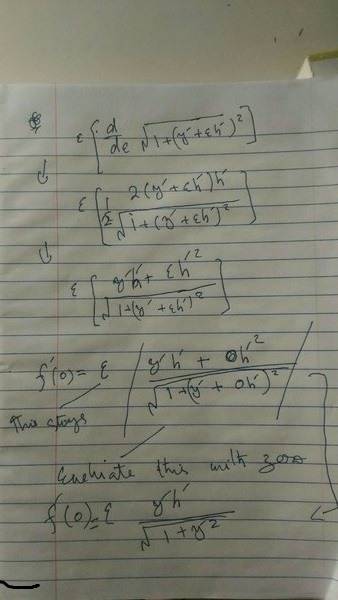 ε [ d/dε √1+(y′+εh′)² ]
↓
ε [ 1/2 2(y′+εh′)h′ / √1+(y′+εh′)² ]
↓
ε [ y′h′ + εh′² / √1+(y′+εh′)² ]
f′(0) = ε | y′h′ + 0h′² / √1+(y′+0h′)² |
This stays
Evaluate this with zero
f′(0) = ε y′h′ / √1+y′²